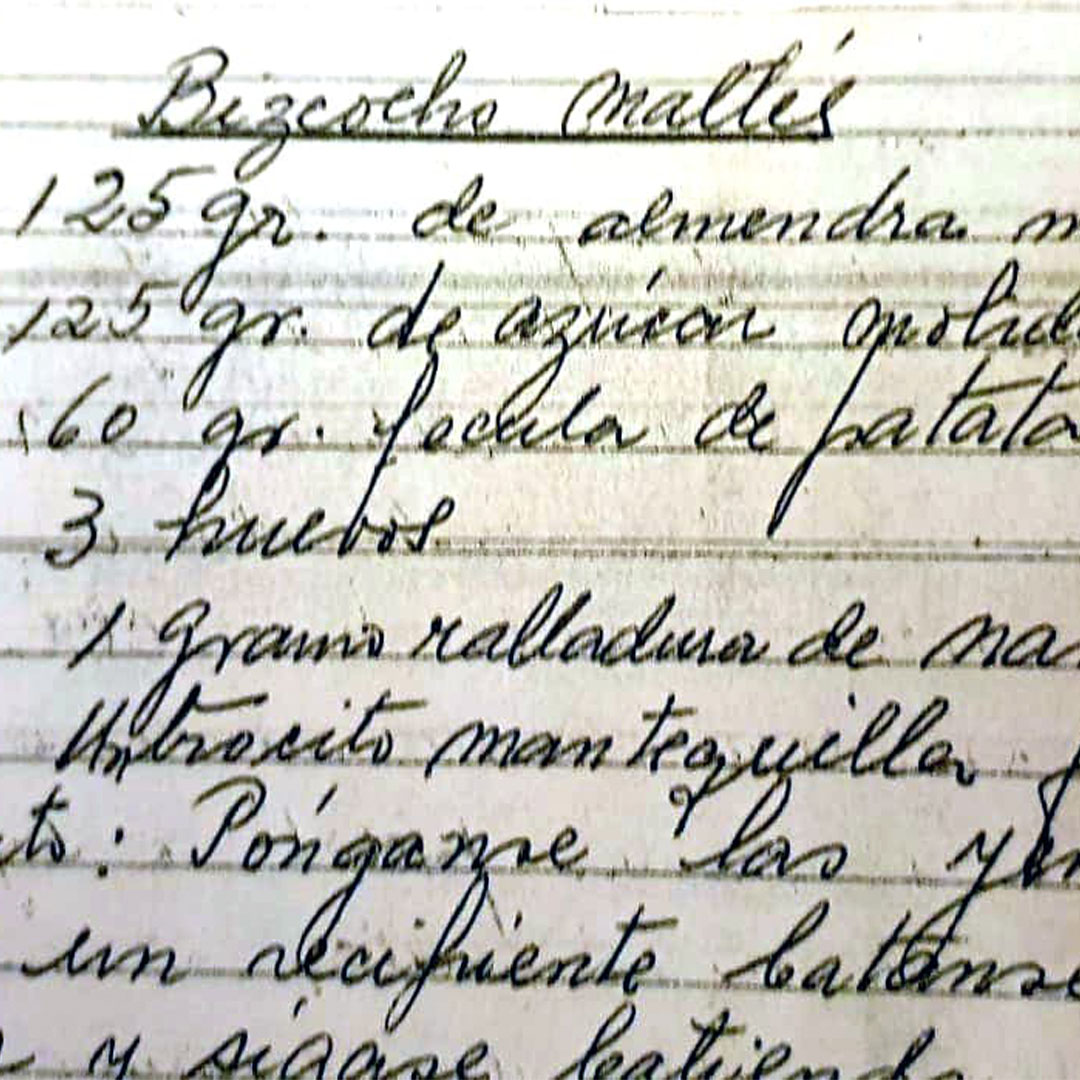 Bizcocho Maltés
125 gr. de almendra m
125 gr. de azúcar molid
60 gr. fecula de patata
3 huevos
1 gramo ralladura de na
Un trocito mantequilla
to: Pónganse las yem
un recipiente batanse
y sígase batiendo